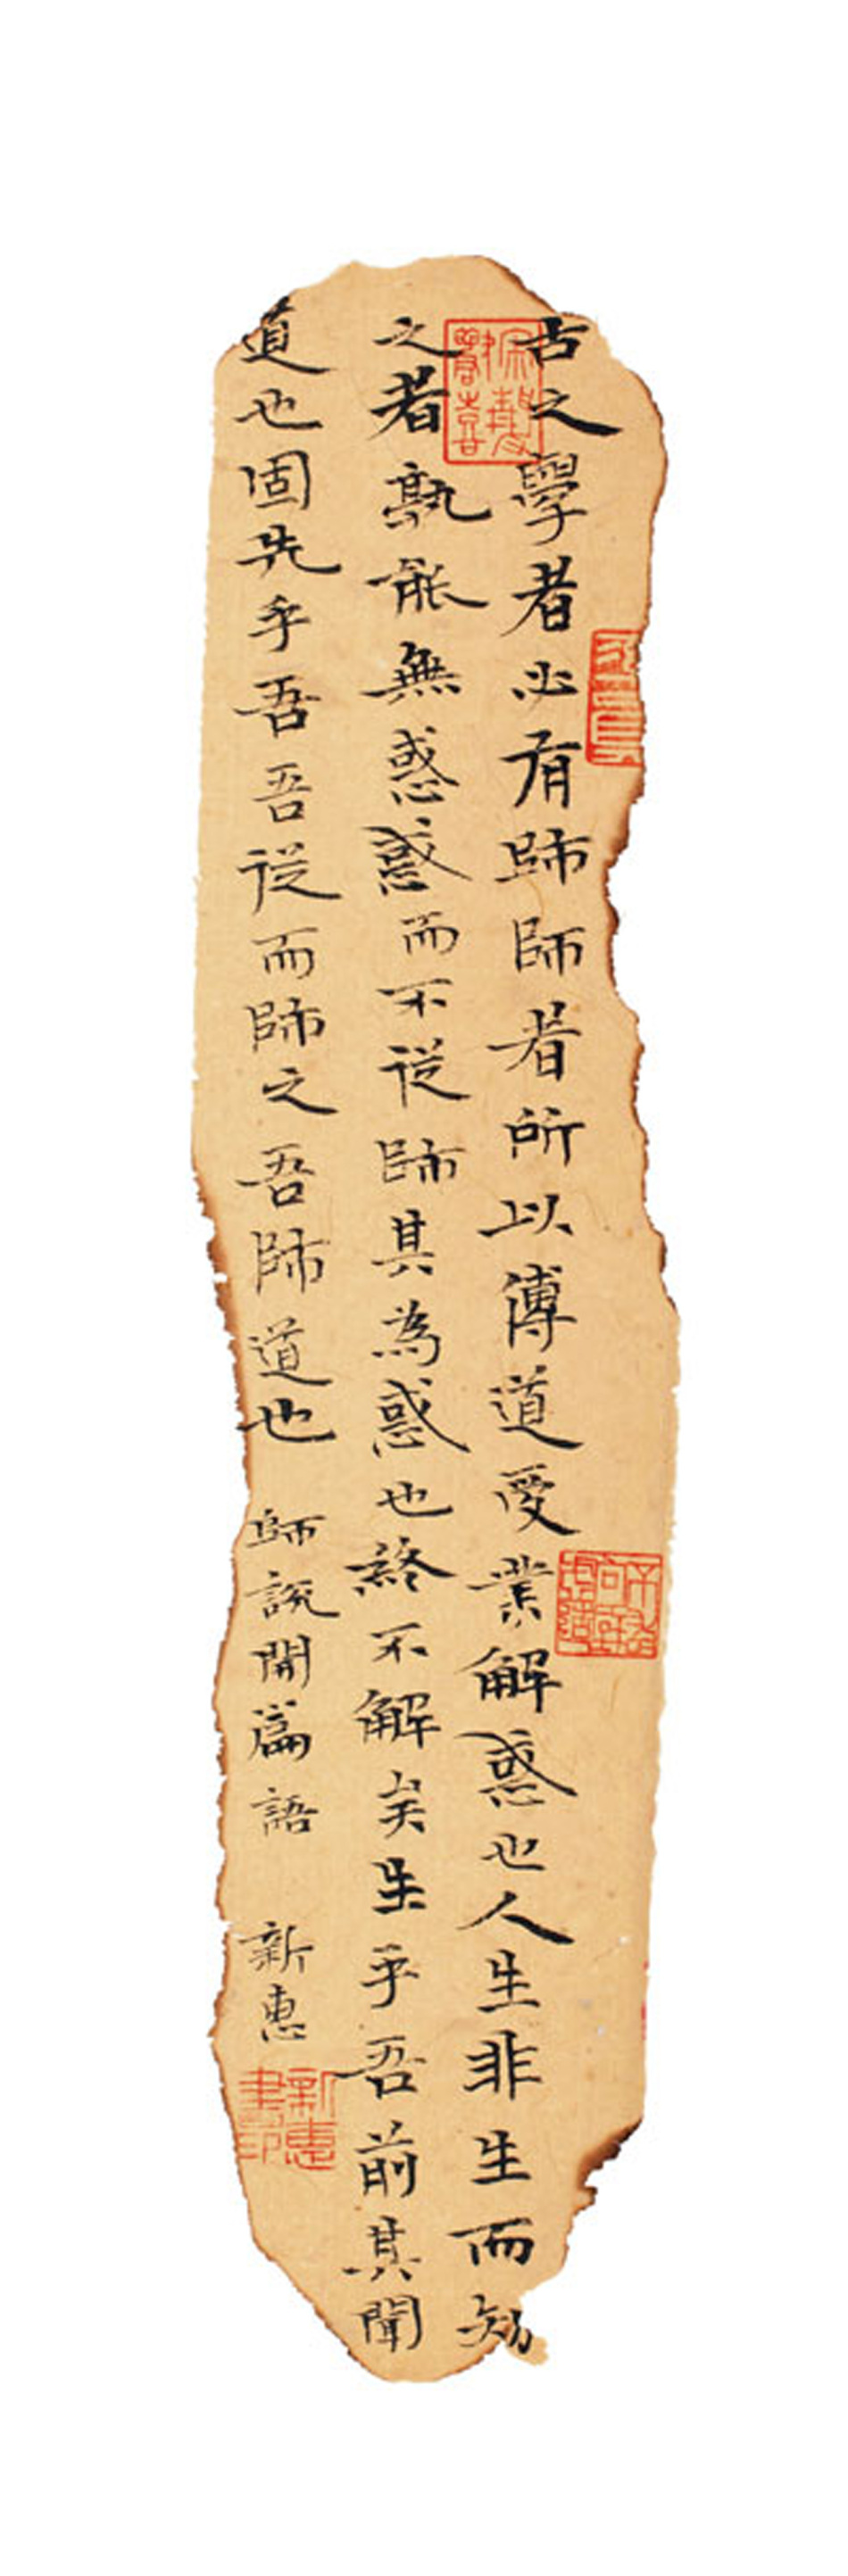 古之學者必有師師者所以傳道受業解惑也人生非生而知
之者孰能無惑惑而不從師其為惑也終不解矣生乎吾前其聞
道也固先乎吾吾從而師之吾師道也 師說開篇語 新惠
新惠書印